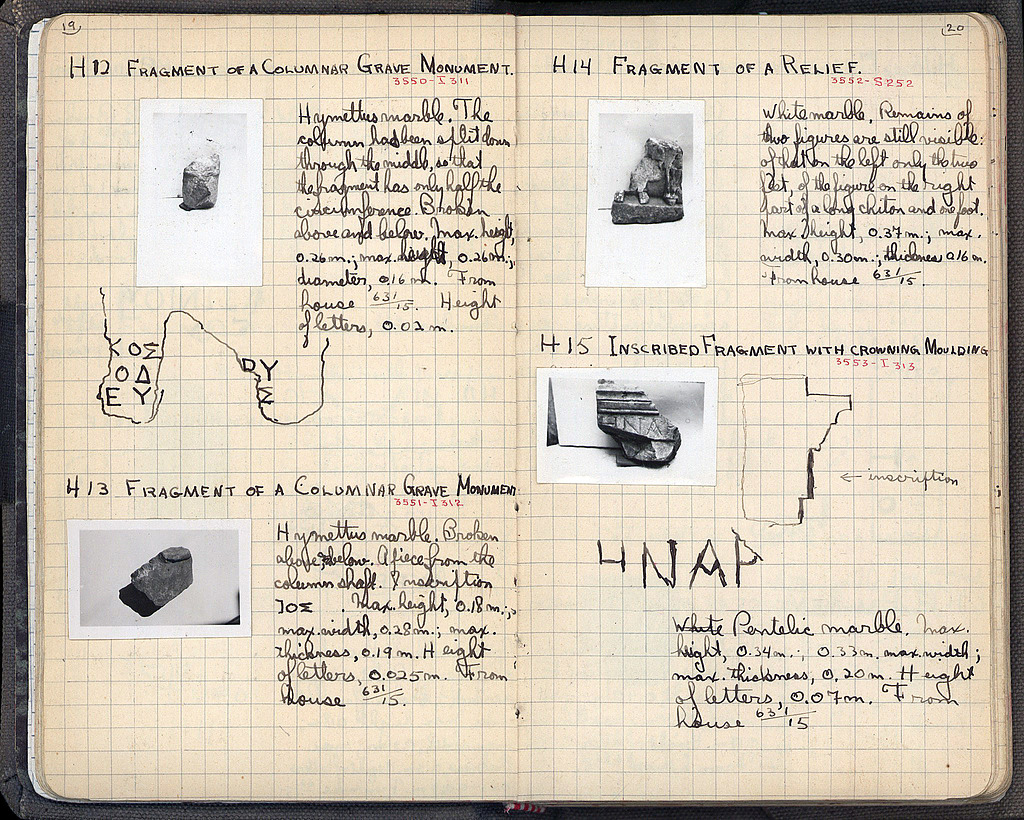 19
H12 FRAGMENT OF A COLUMNAR GRAVE MONUMENT.
3550-I 311
Hymettus marble. The
column has been split down
through the middle, so that
the fragment has only half the
circumference. Broken
above and below. Max. height,
0.26 m.; max. height, 0.26 m.;
diameter, 0.16 m. From
house 631/15. Height
of letters, 0.02 m.
ΚΟΣ
ΟΔ
ΕΥ
ΟΥ
Σ
H13 FRAGMENT OF A COLUMNAR GRAVE MONUMENT
3551-I 312
Hymettus marble. Broken
above & below. A piece from the
column shaft. Inscription
ΙΟΣ . Max. height, 0.18 m.;
max. width, 0.28 m.; max.
thickness, 0.19 m. Height
of letters, 0.025 m. From
house 631/15.
20
H14 FRAGMENT OF A RELIEF.
3552-S 252
White marble. Remains of
two figures are still visible:
of that on the left only the two
feet, of the figure on the right
part of a long chiton and one foot.
Max. height, 0.37 m.; max.
width, 0.30 m.; thickness 0.16 m.
From house 631/15.
H15 INSCRIBED FRAGMENT WITH CROWNING MOULDING
3553-I 313
← inscription
ΗΝΑΡ
White Pentelic marble. Max.
height, 0.34 m.; 0.33 m. max. width;
max. thickness, 0.20 m. Height
of letters, 0.07 m. From
house 631/15